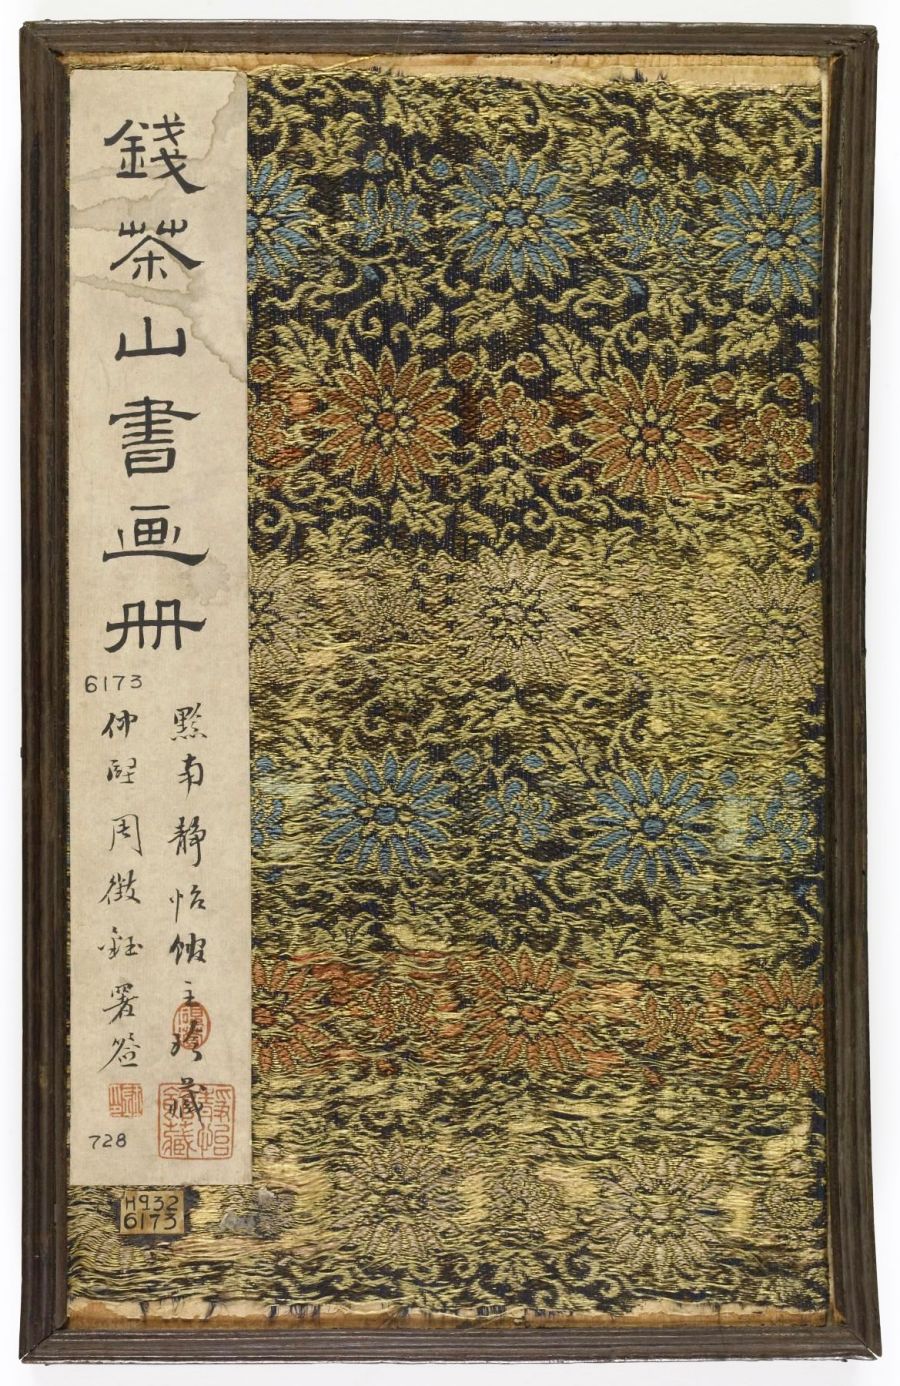 錢茶山書画册
6173
黔南靜怡館主珍藏
仲熙周徵鈺署簽
静怡
728
H932
6173